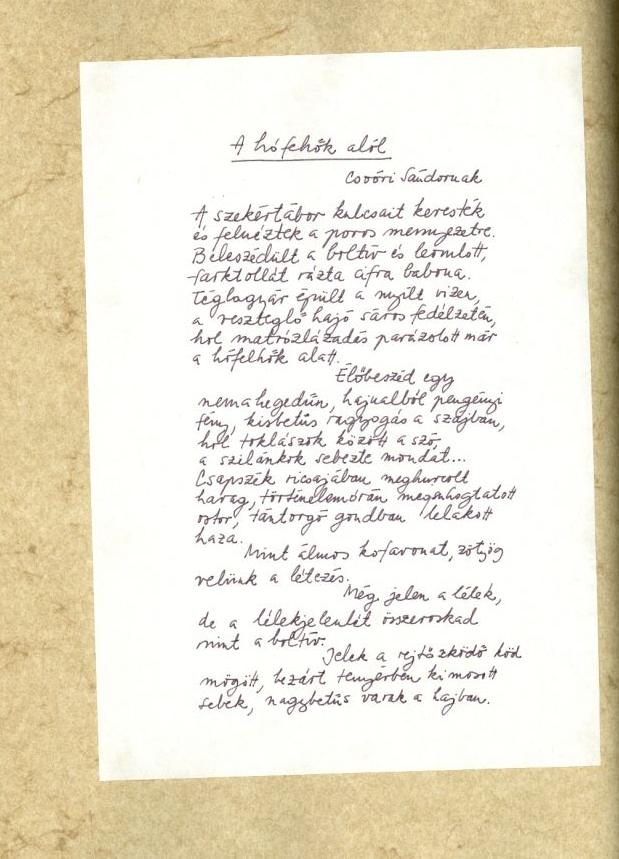 A hófelhők alól
Csoóri Sándornak
A szekértábor kulcsait keresték
és felnéztek a poros mennyezetre.
Beleszédült a boltív és leomlott,
farktollát rázta cifra babona.
Téglagyár épült a nyílt vizen,
a veszteglő hajó sáros fedélzetén,
hol matrózlázadás parázslott már
a hófelhők alatt.
Élőbeszéd egy
némahegedűn, hajnalból pengényi
fény, kisbetűs ragyogás a szájban,
hol toklászok között a szó,
a szilánkok sebezte mondat...
Csapszék ricsajában meghurcolt
harag, történelemórán megsuhogtatott
ostor, tántorgó gondban lelakott
haza.
Mint álmos kofavonat, zötyög
velünk a létezés.
Még jelen a lélek,
de a lélekjelenlét összeroskad
mint a boltív.
Jelek a rejtőzködő köd
mögött, bezárt tenyérben kimosott
sebek, nagybetűs varak a hajban.